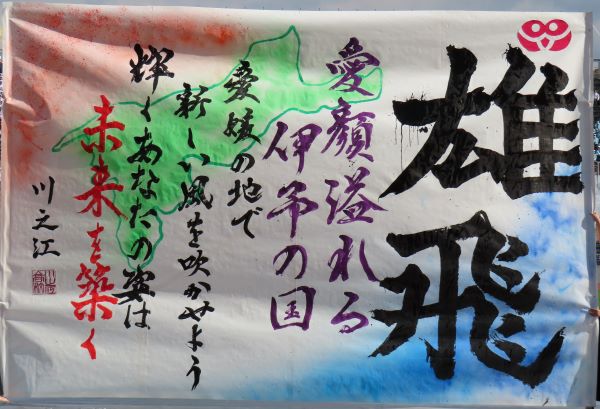 雄飛
愛顔溢れる
伊予の国
愛媛の地で
新しい風を吹かせよう
輝くあなたの姿は
未来を築く
川之江